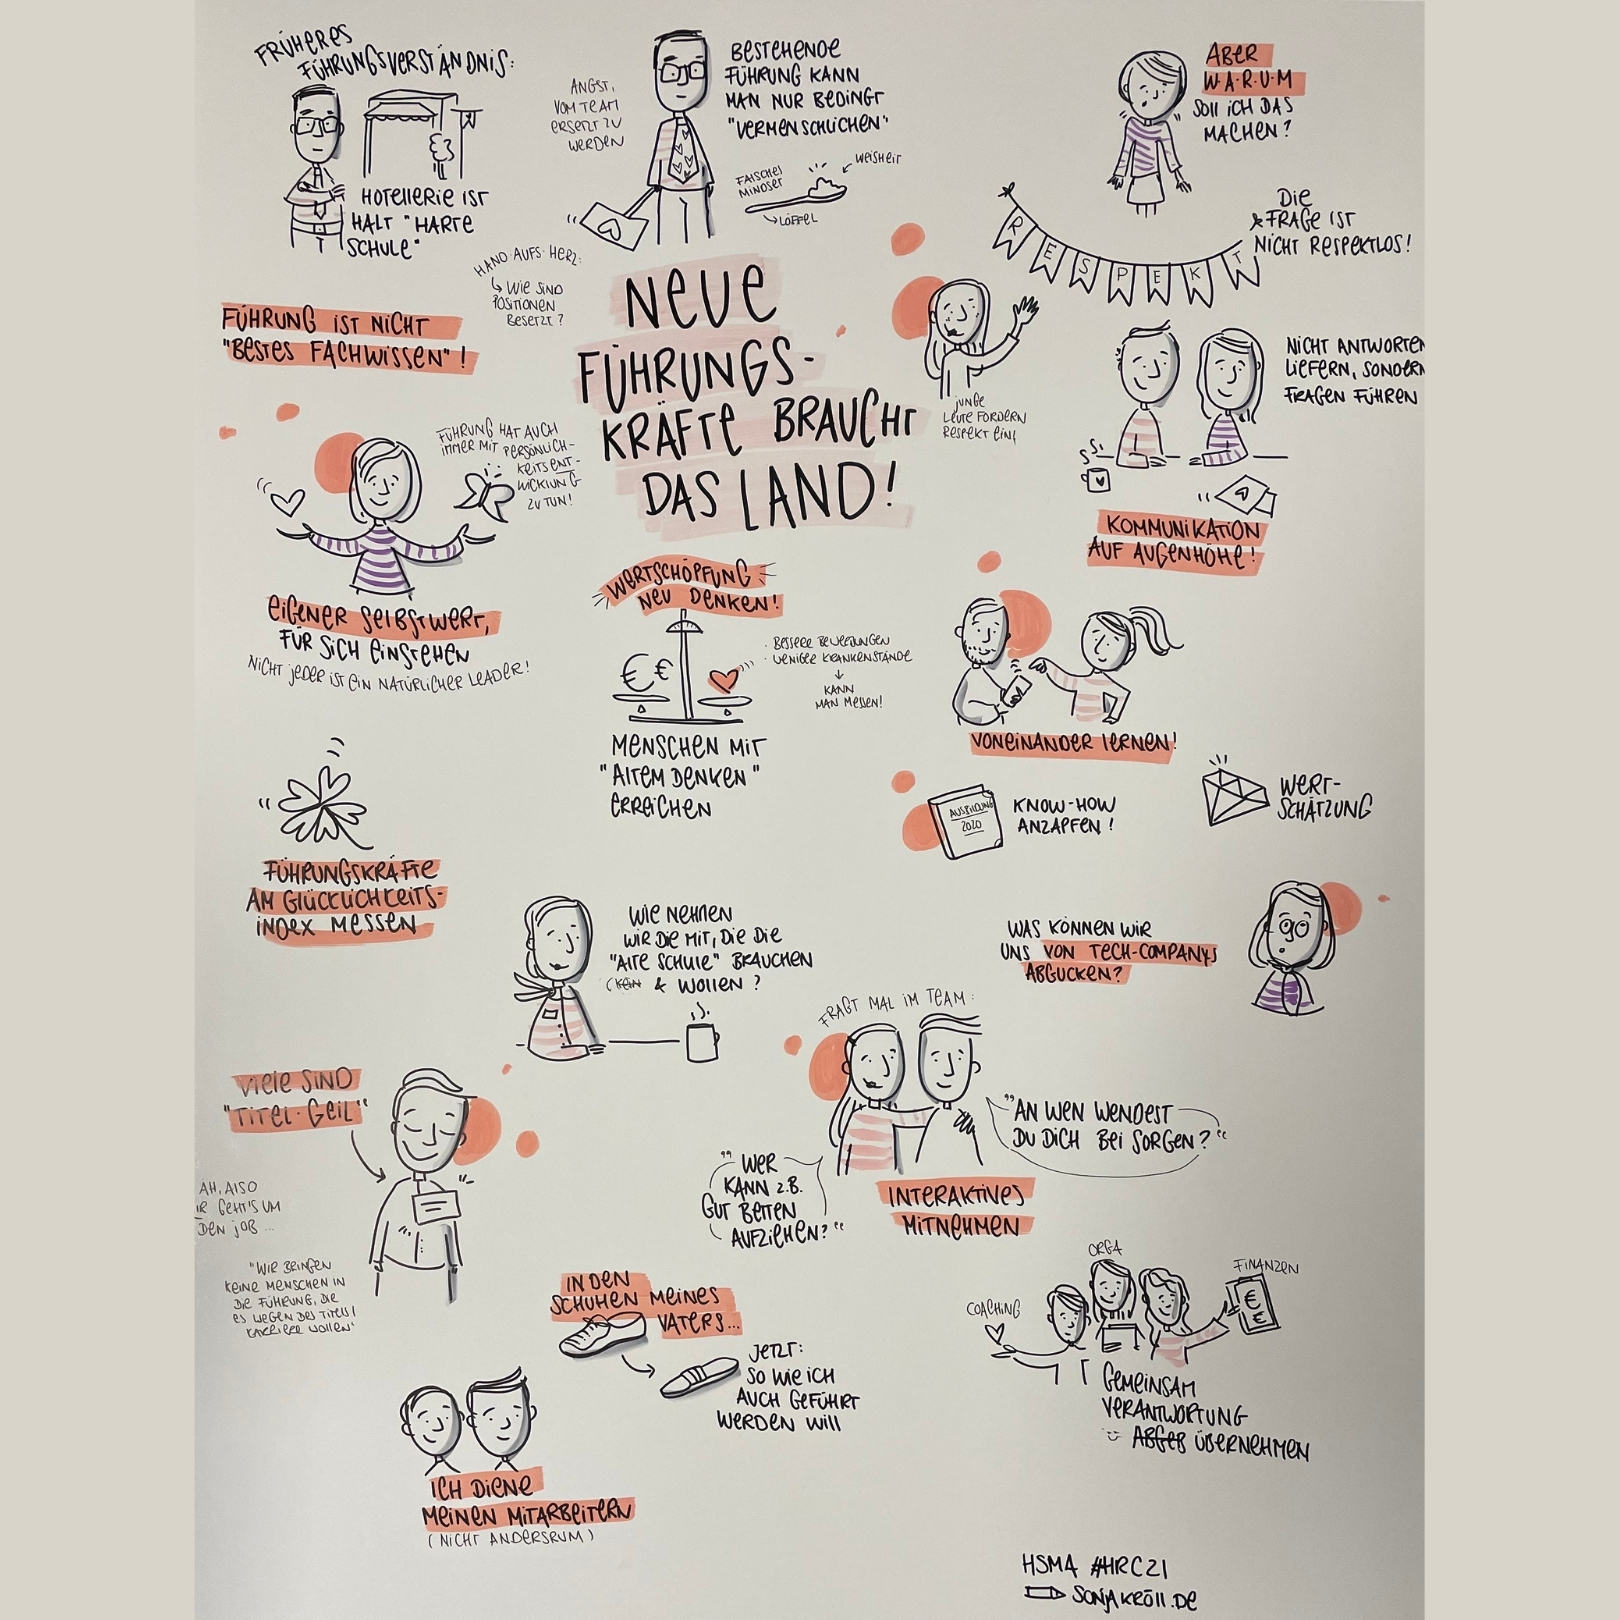 FRÜHERES
FÜHRUNGSVERSTÄNDNIS:
HOTELLERIE IST
HALT "HARTE
SCHULE"
ANGST,
VOM TEAM
ERSETZT ZU
WERDEN
BESTEHENDE
FÜHRUNG KANN
MAN NUR BEDINGT
"VERMENSCHLICHEN"
FALSCHES
MINDSET
WEISHEIT
LÖFFEL
ABER
W·A·R·U·M
SOLL ICH DAS
MACHEN?
DIE
FRAGE IST
NICHT RESPEKTLOS!
RESPEKT
HAND AUFS HERZ:
WIE SIND
POSITIONEN
BESETZT?
NEUE
FÜHRUNGS-
KRÄFTE BRAUCHT
DAS LAND!
JUNGE
LEUTE FORDERN
RESPEKT EIN!
FÜHRUNG IST NICHT
"BESTES FACHWISSEN"!
NICHT ANTWORTEN
LIEFERN, SONDERN
FRAGEN FÜHREN
KOMMUNIKATION
AUF AUGENHÖHE!
FÜHRUNG HAT AUCH
IMMER MIT PERSÖNLICH-
KEITSENT-
WICKLUNG
ZU TUN!
EIGENER SELBSTWERT,
FÜR SICH EINSTEHEN
NICHT JEDER IST EIN NATÜRLICHER LEADER!
WERTSCHÖPFUNG
NEU DENKEN!
€ €
· BESSERE BEWERTUNGEN
· WENIGER KRANKENSTÄNDE
KANN
MAN MESSEN!
MENSCHEN MIT
"ALTEM DENKEN"
ERREICHEN
VONEINANDER LERNEN!
AUSBILDUNG
2020
KNOW-HOW
ANZAPFEN!
WERT-
SCHÄTZUNG
FÜHRUNGSKRÄFTE
AM GLÜCKLICHKEITS-
INDEX MESSEN
WIE NEHMEN
WIR DIE MIT, DIE DIE
"ALTE SCHULE" BRAUCHEN
& WOLLEN?
WAS KÖNNEN WIR
UNS VON TECH-COMPANYS
ABGUCKEN?
VIELE SIND
"TITEL-GEIL"
AH, ALSO
IR GEHT'S UM
DEN JOB...
"WIR BRINGEN
KEINE MENSCHEN IN
DIE FÜHRUNG, DIE
ES WEGEN DES TITELS/
KARRIERE WOLLEN"
FRAGT MAL IM TEAM:
"AN WEN WENDEST
DU DICH BEI SORGEN?"
"WER
KANN Z.B.
GUT BETTEN
AUFZIEHEN?"
INTERAKTIVES
MITNEHMEN
IN DEN
SCHUHEN MEINES
VATERS...
JETZT:
SO WIE ICH
AUCH GEFÜHRT
WERDEN WILL
COACHING
ORGA
FINANZEN
€
€
GEMEINSAM
VERANTWORTUNG
ABGEB ÜBERNEHMEN
ICH DIENE
MEINEN MITARBEITERN
(NICHT ANDERSRUM)
HSMA #HRC21
SONJAKRÖLL.DE